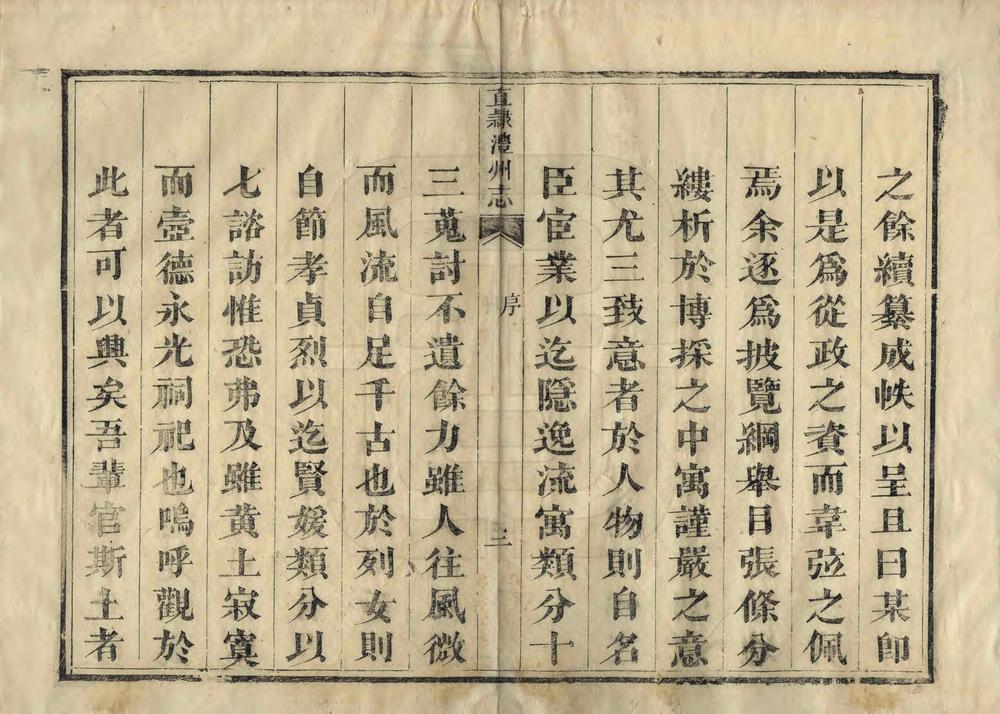 之餘續纂成帙以呈且曰某卽
以是爲從政之資而韋弦之佩
焉余逐爲披覽綱舉目張條分
縷析於博採之中寓謹嚴之意
其尤三致意者於人物則自名
臣宦業以迄隱逸流寓類分十
直隸澧州志
序
三
三蒐討不遺餘力雖人往風微
而風流自足千古也於列女則
自節孝貞烈以迄賢媛類分以
七諮訪惟恐弗及雖黃土寂寞
而壼德永光祠祀也嗚呼觀於
此者可以興矣吾輩官斯土者